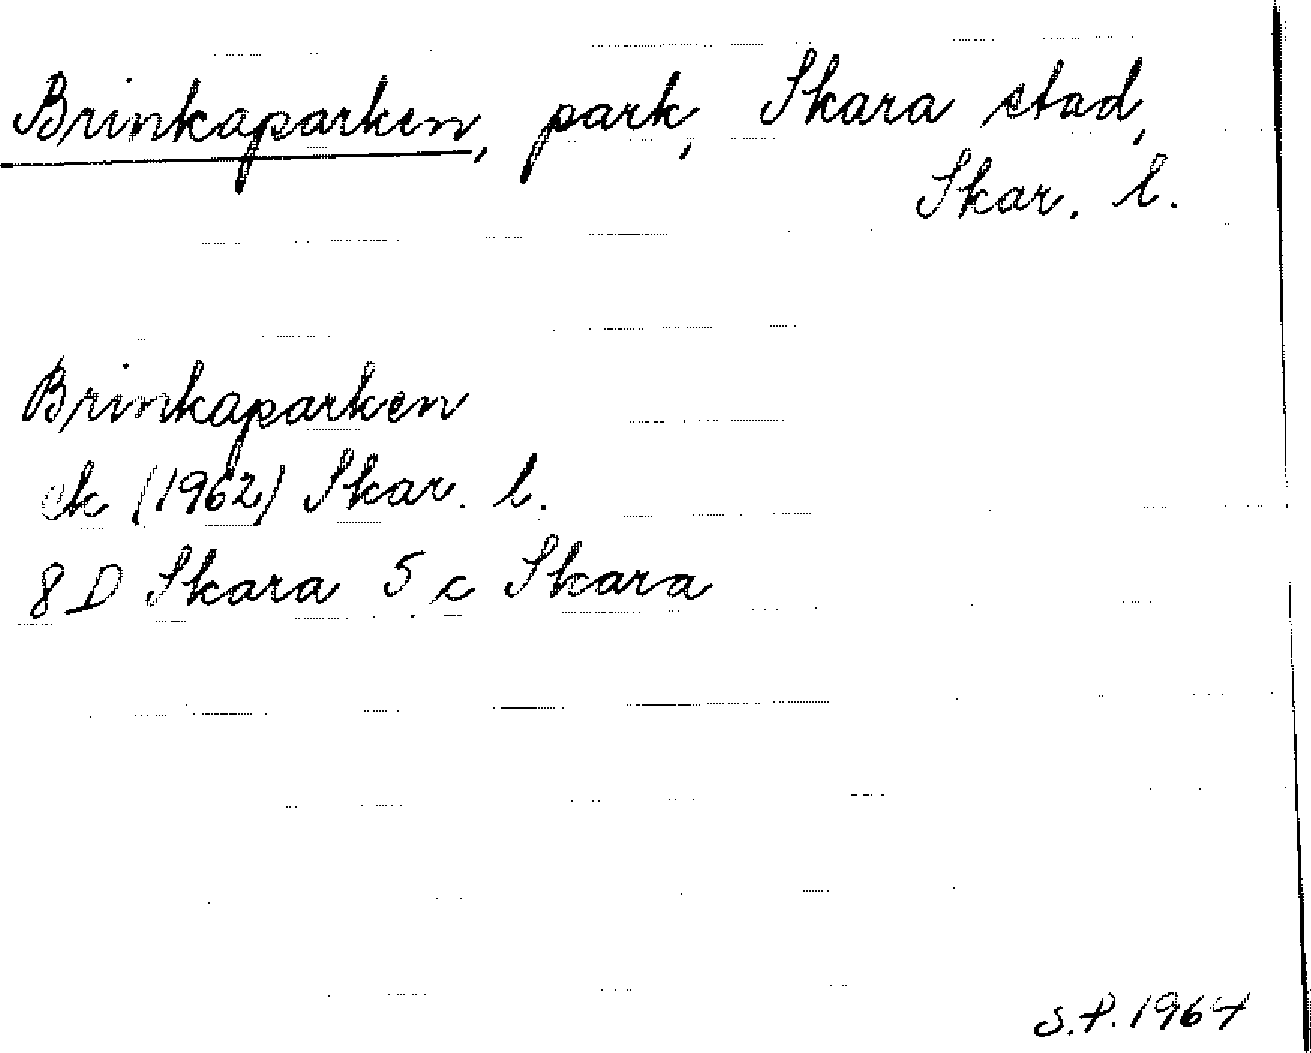 Brinkaparken, park, Skara stad,
Skar. l.
Brinkaparken
ek (1962) Skar. l.
8D Skara 5 c Skara
S.P. 1964